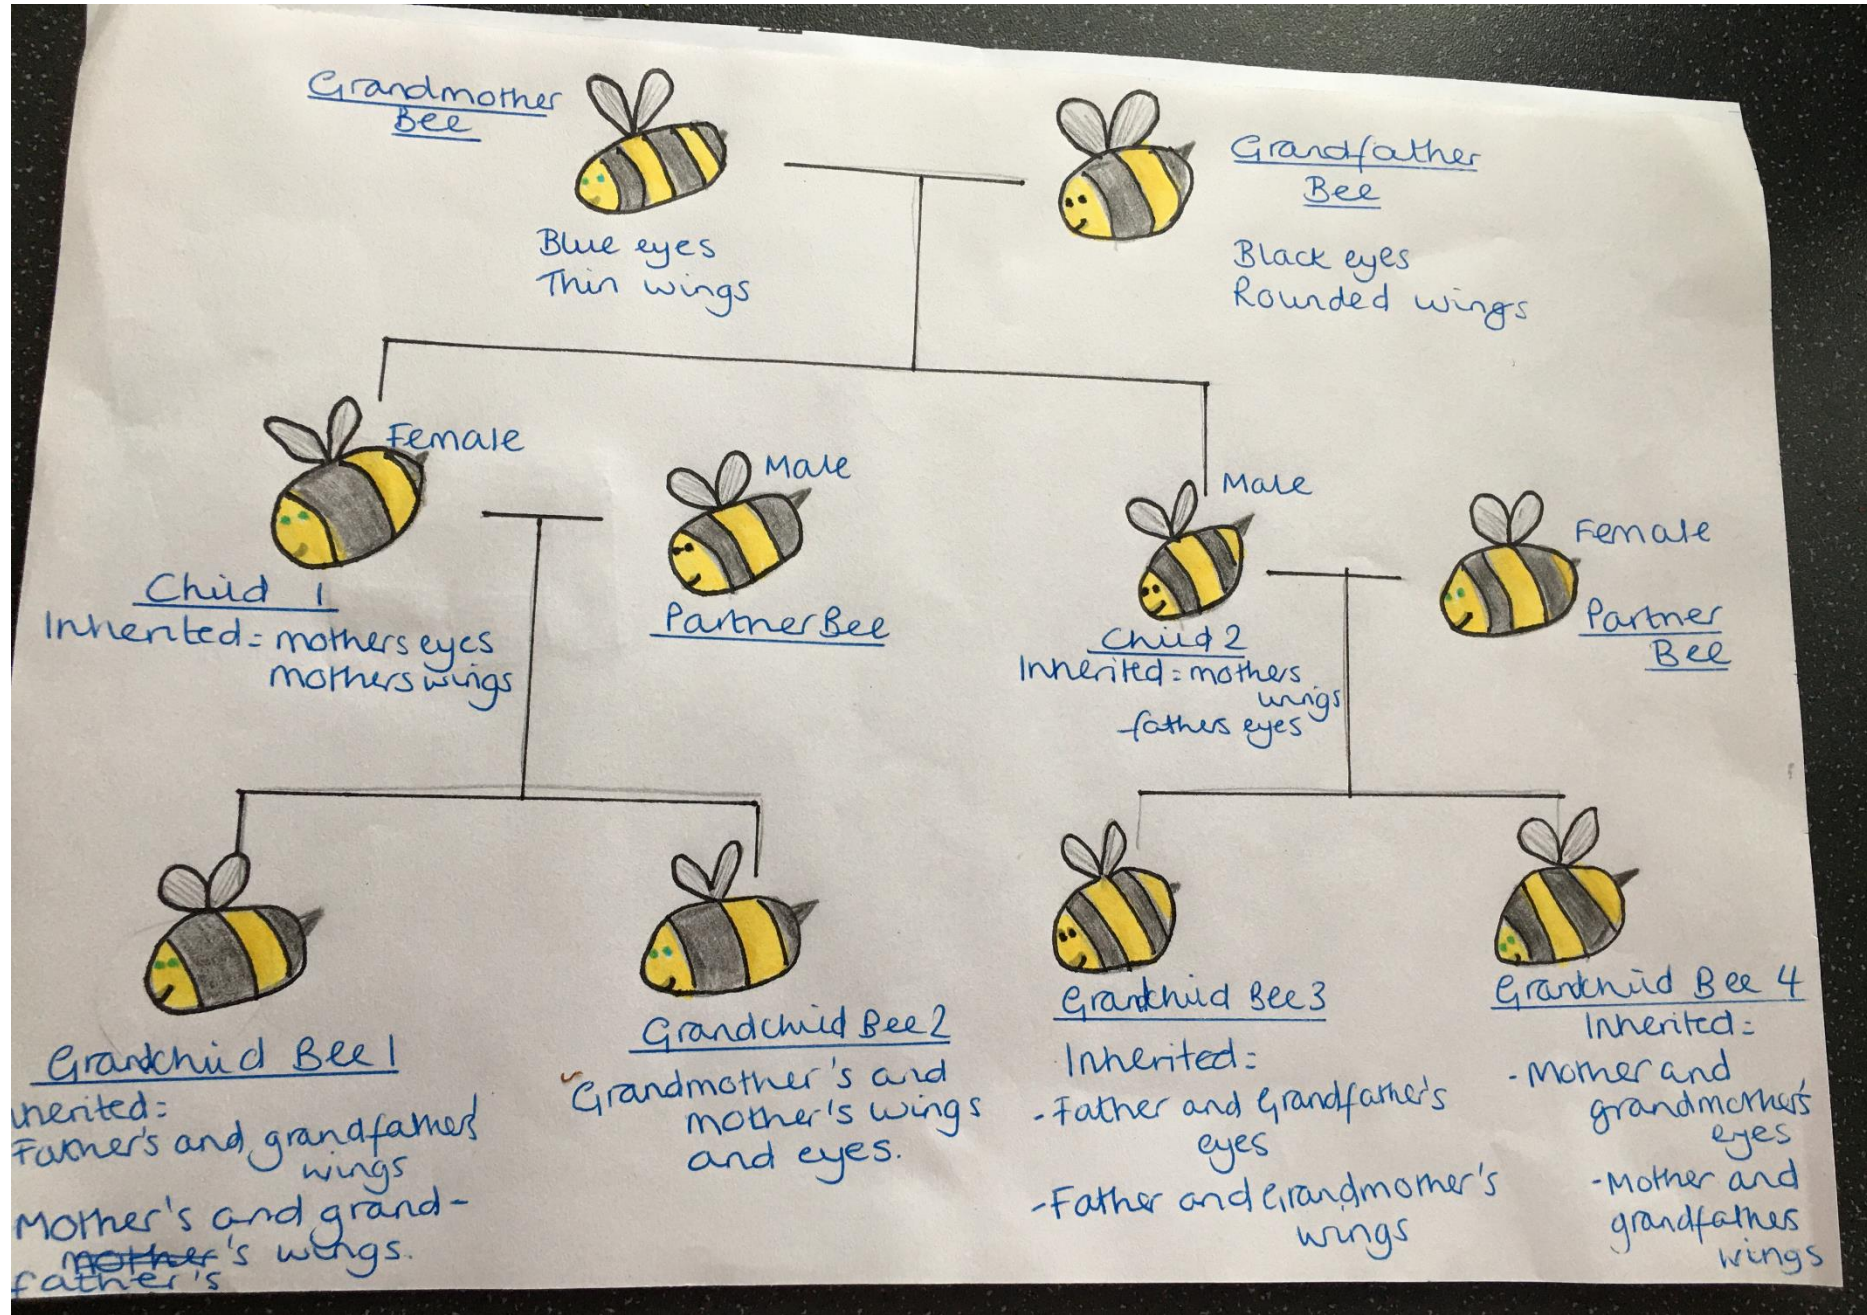 Grandmother
Bee
Blue eyes
Thin wings
Grandfather
Bee
Black eyes
Rounded wings
Female
Child 1
Inherited = mothers eyes
mothers wings
Male
Partner Bee
Male
Child 2
Inherited = mothers
wings
fathers eyes
Female
Partner
Bee
Grandchild Bee 1
nherited =
Father's and grandfathers'
wings
Mother's and grand-
mother's wings.
father's
Grandchild Bee 2
Grandmother's and
mother's wings
and eyes.
Grandchild Bee 3
Inherited =
- Father and Grandfather's
eyes
- Father and Grandmother's
wings
Grandchild Bee 4
Inherited =
- Mother and
grandmother's
eyes
- Mother and
grandfathers
wings